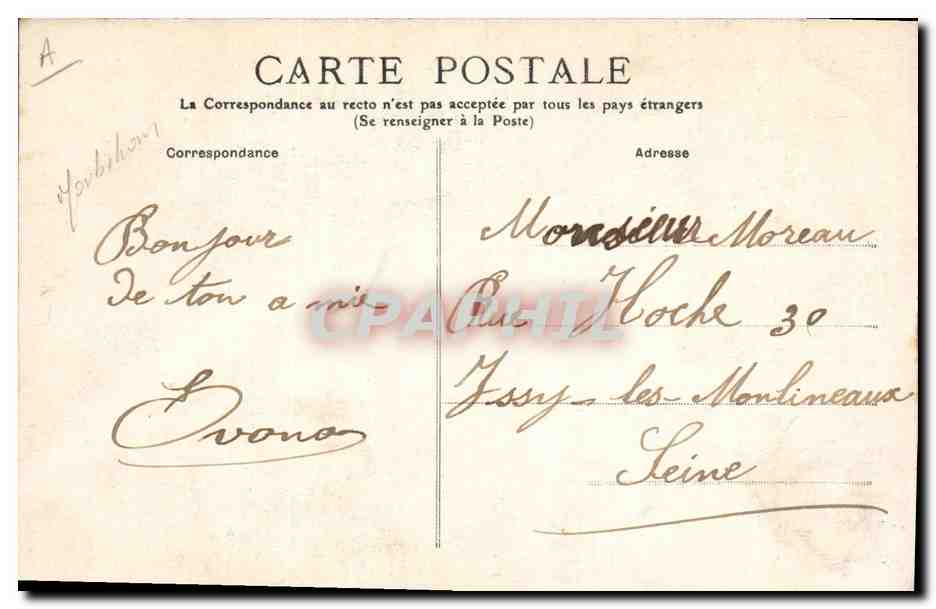 A
CARTE POSTALE
La Correspondance au recto n'est pas acceptée par tous les pays étrangers
(Se renseigner à la Poste)
Morbihan
Correspondance
Bonjour
de ton amie
Adresse
Monsieur Moreau
Rue Hoche 30
Issy-les-Moulineaux
Seine
CPAPHIL